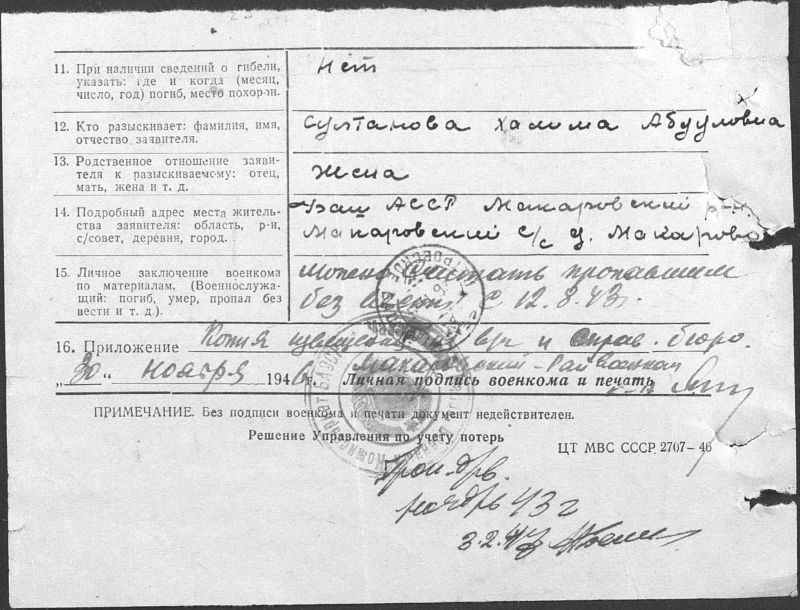 11. При наличии сведений о гибели,
указать: где и когда (месяц,
число, год) погиб, место похорон.
Нет
12. Кто разыскивает: фамилия, имя,
отчество заявителя.
Султанова Халима Абдуловна
13. Родственное отношение заяви-
теля к разыскиваемому: отец,
мать, жена и т. д.
Жена
14. Подробный адрес места житель-
ства заявителя: область, р-н,
с/совет, деревня, город.
Баш АССР Макаровский р-н.
Макаровский с/с д. Макарово
15. Личное заключение военкома
по материалам. (Военнослужа-
щий: погиб, умер, пропал без
вести и т. д.).
Можно считать пропавшим
без вести с 12.8.43г.
16. Приложение Копия извещения и справ. бюро.
Макаровский Райвоенком
„30" ноября 1946г. Личная подпись военкома и печать
к-н
ПРИМЕЧАНИЕ. Без подписи военкома и печати документ недействителен.
Решение Управления по учету потерь
ЦТ МВС СССР 2707—46
ноябрь 43 г
3.2.47